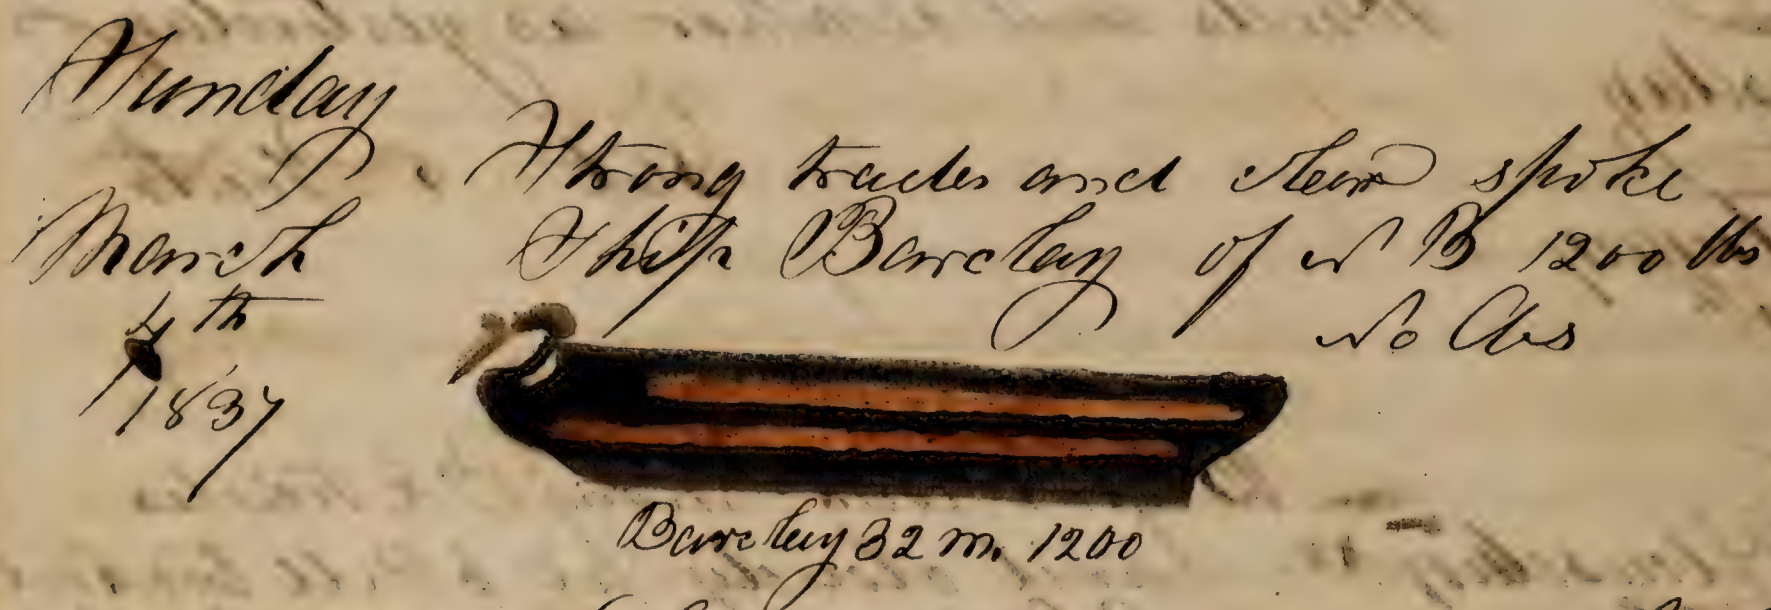 Sunday
March
4th
1837
Strong trades and clear spoke
Ship Barclay of N B 1200 bbs
No Obs
Barclay 32 m. 1200